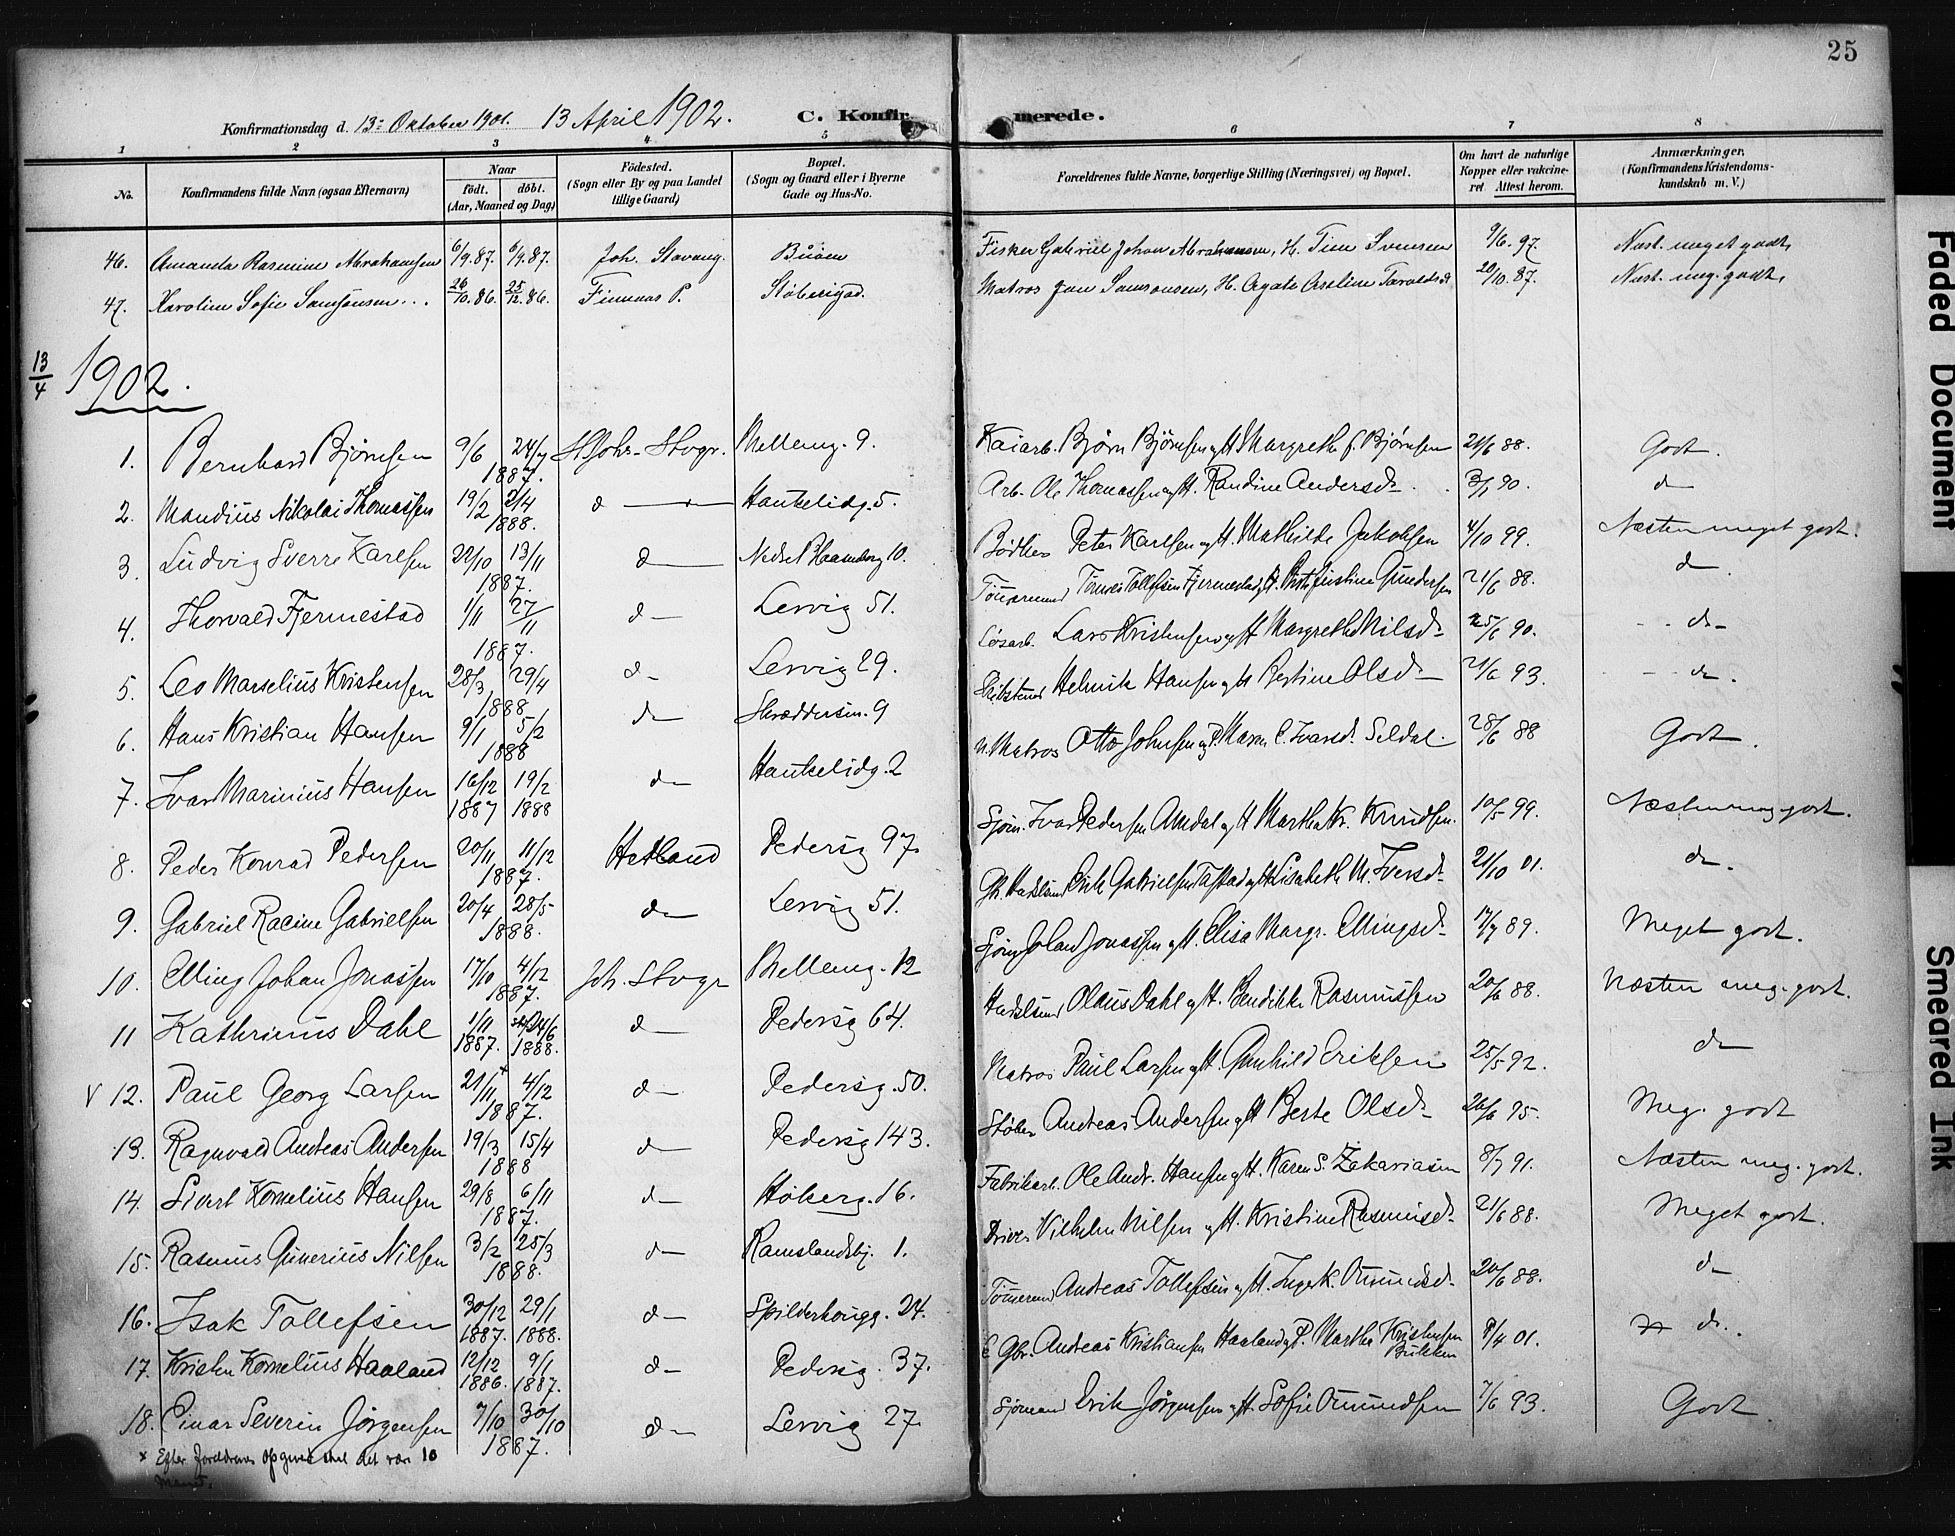 25
Konfirmationsdag d. 13: Oktober 1901. 13 April 1902. C. Konfir- merede.
1 2 3 4 5 6 7 8
No. Konfirmandens fulde Navn (ogsaa Efternavn) Naar født. døbt. (Aar, Maaned og Dag) Fødested. (Sogn eller By og paa Landet tillige Gaard) Bopæl. (Sogn og Gaard eller i Byerne Gade og Hus-No. Forældrenes fulde Navne, borgerlige Stilling (Næringsvei) og Bopæl. Om havt de naturlige Kopper eller vakcineret Attest herom. Anmærkninger, (Konfirmandens Kristendomskundskab m. V.)
46. Amanda Rasmine Abrahamsen 6/9.87. 6/9.87. Joh. Stavang. Buøen Fisker Gabriel Johan Abrahamsen, H. Tine Svensen 9/6.97. Næst. meget godt,
47. Karoline Sofie Samsonsen... 26/10.86. 25/12.86. Finnaas P. Støberigad. Matros Jan Samsonsen, H. Agate Taraldsd 20/10.87. Næst. meg. godt,
13/4 1902.
1. Bernhard Bjørnsen 9/6 24/7 1887. St Johs. Stvgr. Mellemg. 9. Kaiarb. Bjørn Bjørnsen og H. Margrethe f. Bjørnsen 21/6 88. Godt.
2. Mandius Nikolai Thomassen 19/2 2/4 1888. d Haukelidg. 5. Arb. Ole Thomassen og H. Randine Andersd. 3/1 90. d
3. Ludvig Sverre Karlsen 22/10 13/11 1887. d Nedre Blaasenborg 10. Bødker Peter Karlsen og H. Mathilde Jakobsen 4/10 99. Næsten meget godt.
4. Thorvald Fjermestad 1/11 27/11 1887. d Lervig 51. Tømmermand Tønnes Tollefsen Fjermestad, H. Gundersen 21/6 88. d
5. Leo Marselius Kristensen 28/3 29/4 1888 d Lervig 29. Løsarb. Lars Kristensen og H. Margrethe Nilsd. 25/6 90. d
6. Hans Kristian Hansen 9/1 5/2 1888 d Skræddersm. 9 Helmik Hansen og H. Bertine Olsd. 21/6 93. d
7. Ivar Marinius Hansen 16/12 1887 19/2 1888 d Haukelidg. 2 Matros Otto Johnsen og P. Maren C. Ivarsd. Seldal. 28/6 88 Godt.
8. Peder Konrad Pedersen 20/11 11/12 1887. Hetland Pedersg 97. Sjøm. Ivar Pedersen Amdal og H. Martha Kr. Knudsen. 10/5 99. Næsten meg godt.
9. Gabriel Racine Gabrielsen 20/4 28/5 1888. d Lervig 51. Erik Gabrielsen Tastad og H. Lisabeth M. Iversd. 21/10 01. d
10. Elling Johan Jonassen 17/10 4/12 1887. Joh. Stvgr Mellemg. 12 Sjøm. Johan Jonassen og H. Elisa Margr. Ellingsd. 17/7 89. Meget godt.
11 Kathrinus Dahl 1/11 1887. 24/6 1888. d Pedersg 64. Handelsmd Olaus Dahl og H. Bendikke Rasmussen 20/6 88. Næsten meg. godt.
V 12. Paul Georg Larsen 21/11 x 4/12 1887. d Pedersg. 50. Matros Paul Larsen og H. Gunhild Eriksen 25/5 92. d
13. Ragnvald Andreas Andersen 19/3 15/4 1888 d Pedersg 143. Støber Andreas Andersen og H. Berte Olsd. 26/6 95. Meg. godt
14. Sivert Kornelius Hansen 29/8 6/11 1887. d Høberg. 16. Fabrikarb. Ole Andr. Hansen og H. Karen S. Zakariasen 8/7 91. Næsten meg. godt.
15. Rasmus Gunerius Nilsen 3/2 25/3 1888. d Ramslandsbj. 1. Driver Vilhelm Nilsen og H. Kristine Rasmusd. 21/6 88. Meget godt.
16. Isak Tollefsen 30/12 1887. 29/1 1888. d Spilderhougg. 24. Tømmermd Andreas Tollefsen og H. Inger K. Omundsd. 20/6 88. d
17. Kristen Kornelius Haaland 12/12 1886. 9/1 1887. d Pedersg. 37. E Gbr. Andreas Kristiansen Haaland og P. Martha Kristensen Bukken 9/4 01. d.
18. Einar Severin Jørgensen 7/10 30/10 1887. d Lervig 27. Sjømand Erik Jørgensen og H. Sofie Omundsen 7/6 93. Godt.
x Efter Forældrenes opgivelse skal det være 10
Faded Document
Smeared Ink